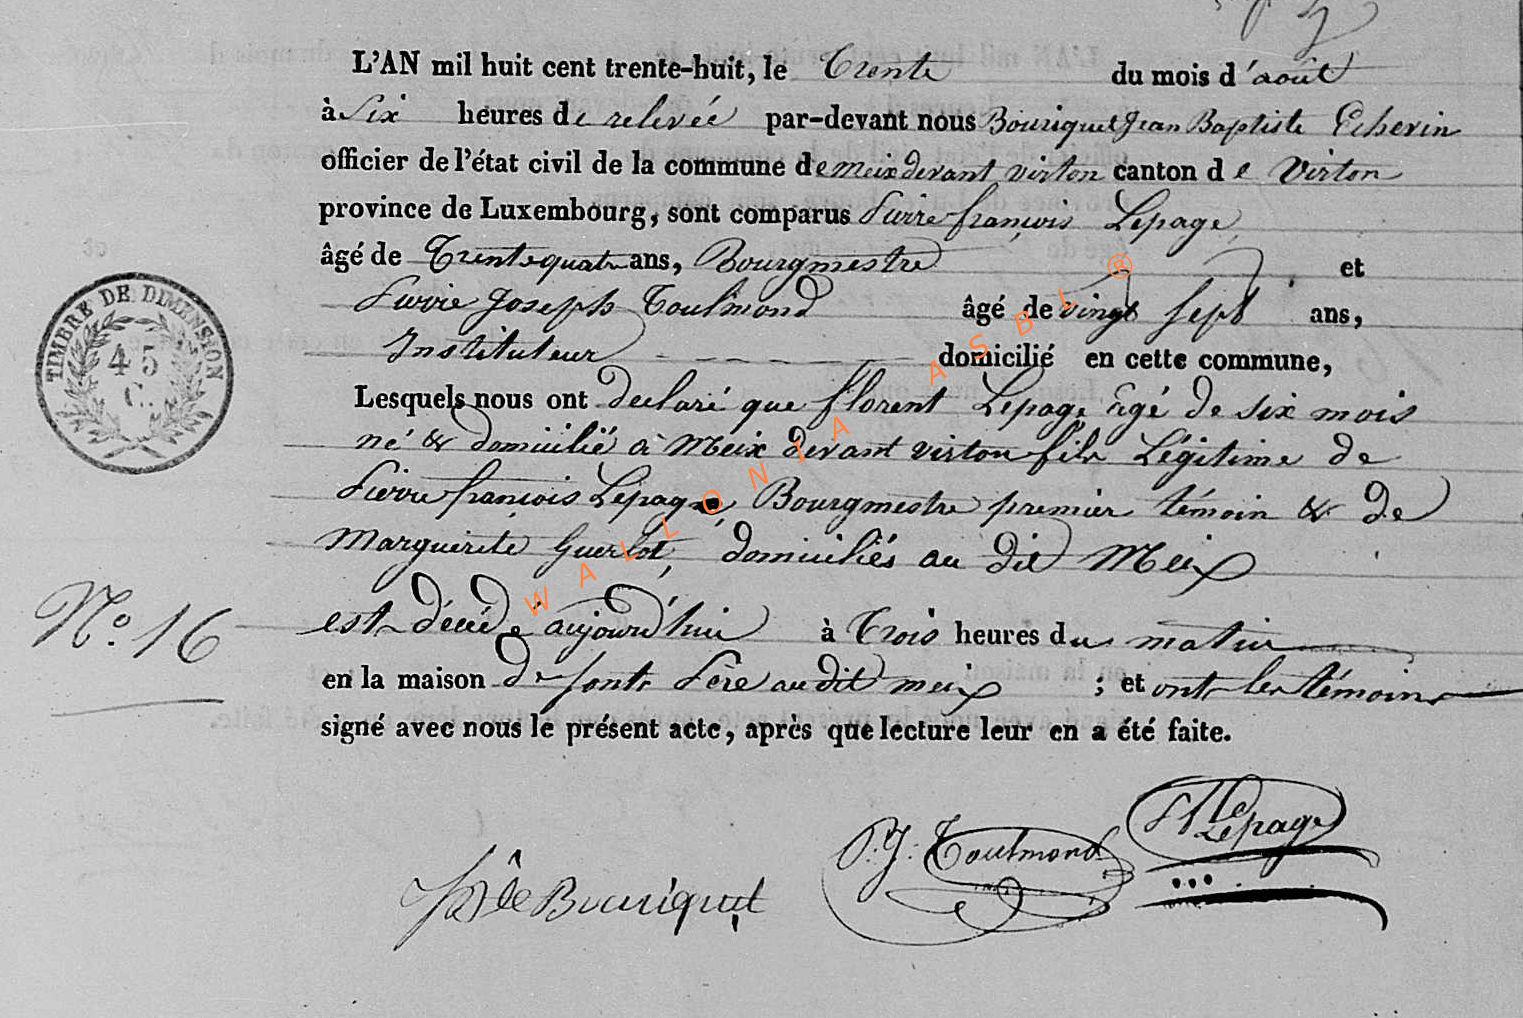 L'AN mil huit cent trente-huit, le Trente du mois d'août
à Six heures de relevée par-devant nous Bouriquet Jean Baptiste Echevin
officier de l'état civil de la commune de meix devant virton canton de Virton
province de Luxembourg, sont comparus Pierre françois Lepage,
âgé de Trente quatre ans, Bourgmestre et
Pierre Joseph Toulmond âgé de vingt sept ans,
Instituteur domicilié en cette commune,
Lesquels nous ont declaré que florent Lepage âgé de six mois
né & domicilié à Meix devant virton fils Légitime de
Pierre françois Lepage, Bourgmestre premier témoin & de
Marguerite Guerlot, domiciliés au dit Meix
N° 16
est décédé aujourd'hui à Trois heures du matin
en la maison de sont Père au dit meix ; et ont les témoins
signé avec nous le présent acte, après que lecture leur en a été faite.
TIMBRE DE DIMENSION
45
C.
WALLONIA ASBL ®
Lepage
P. J. Toulmond
Bouriquet